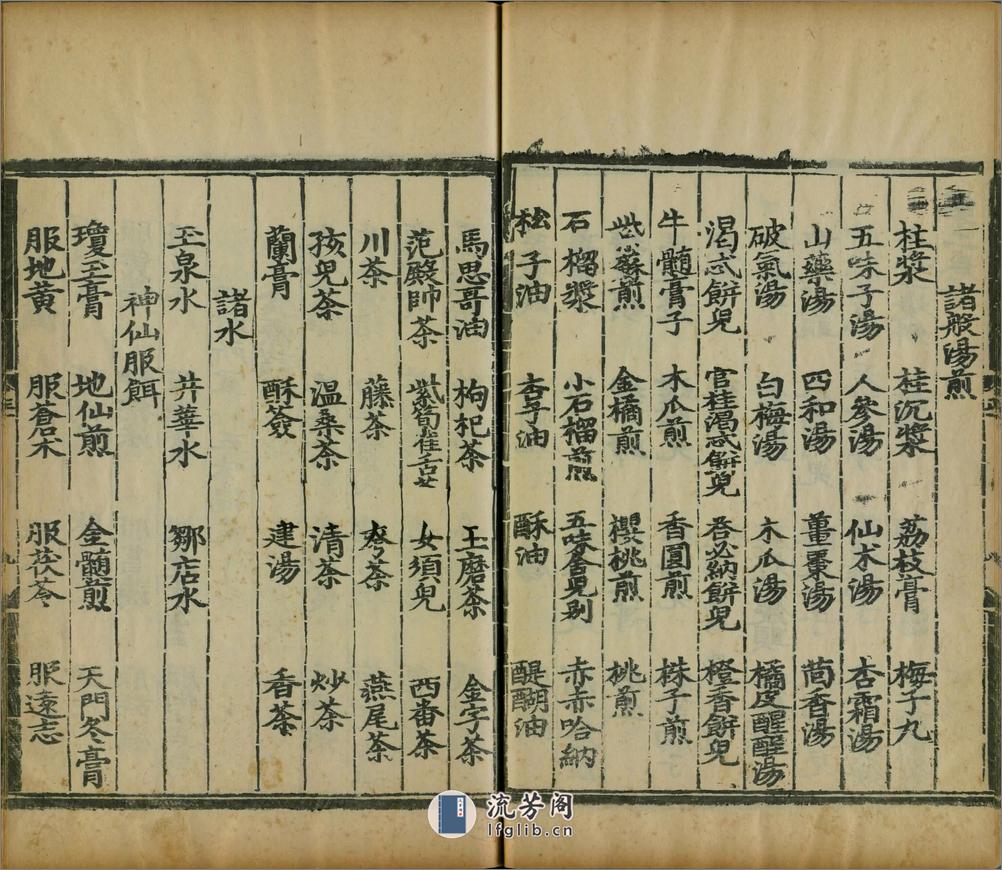 諸般湯煎
桂漿 桂沉漿 荔枝膏 梅子丸
五味子湯 人參湯 仙术湯 杏霜湯
山藥湯 四和湯 薑棗湯 茴香湯
破氣湯 白梅湯 木瓜湯 橘皮醒酲湯
渴忒餅兒 官桂渴忒餅兒 荅必納餅兒 橙香餅兒
牛髓膏子 木瓜煎 香圓煎 株子煎
紫蘇煎 金橘煎 櫻桃煎 桃煎
石榴漿 小石榴煎 五味舍兒别 赤赤哈納
松子油 杏子油 酥油 醍醐油
馬思哥油 枸杞茶 玉磨茶 金字茶
范殿帥茶 紫筍雀舌茶 女須兒 西番茶
川茶 藤茶 夸茶 燕尾茶
孩兒茶 溫桑茶 清茶 炒茶
蘭膏 酥簽 建湯 香茶
諸水
玉泉水 井華水 鄒店水
神仙服餌
瓊玉膏 地仙煎 金髓煎 天門冬膏
服地黃 服蒼术 服茯苓 服遠志
流芳阁
lfglib.cn